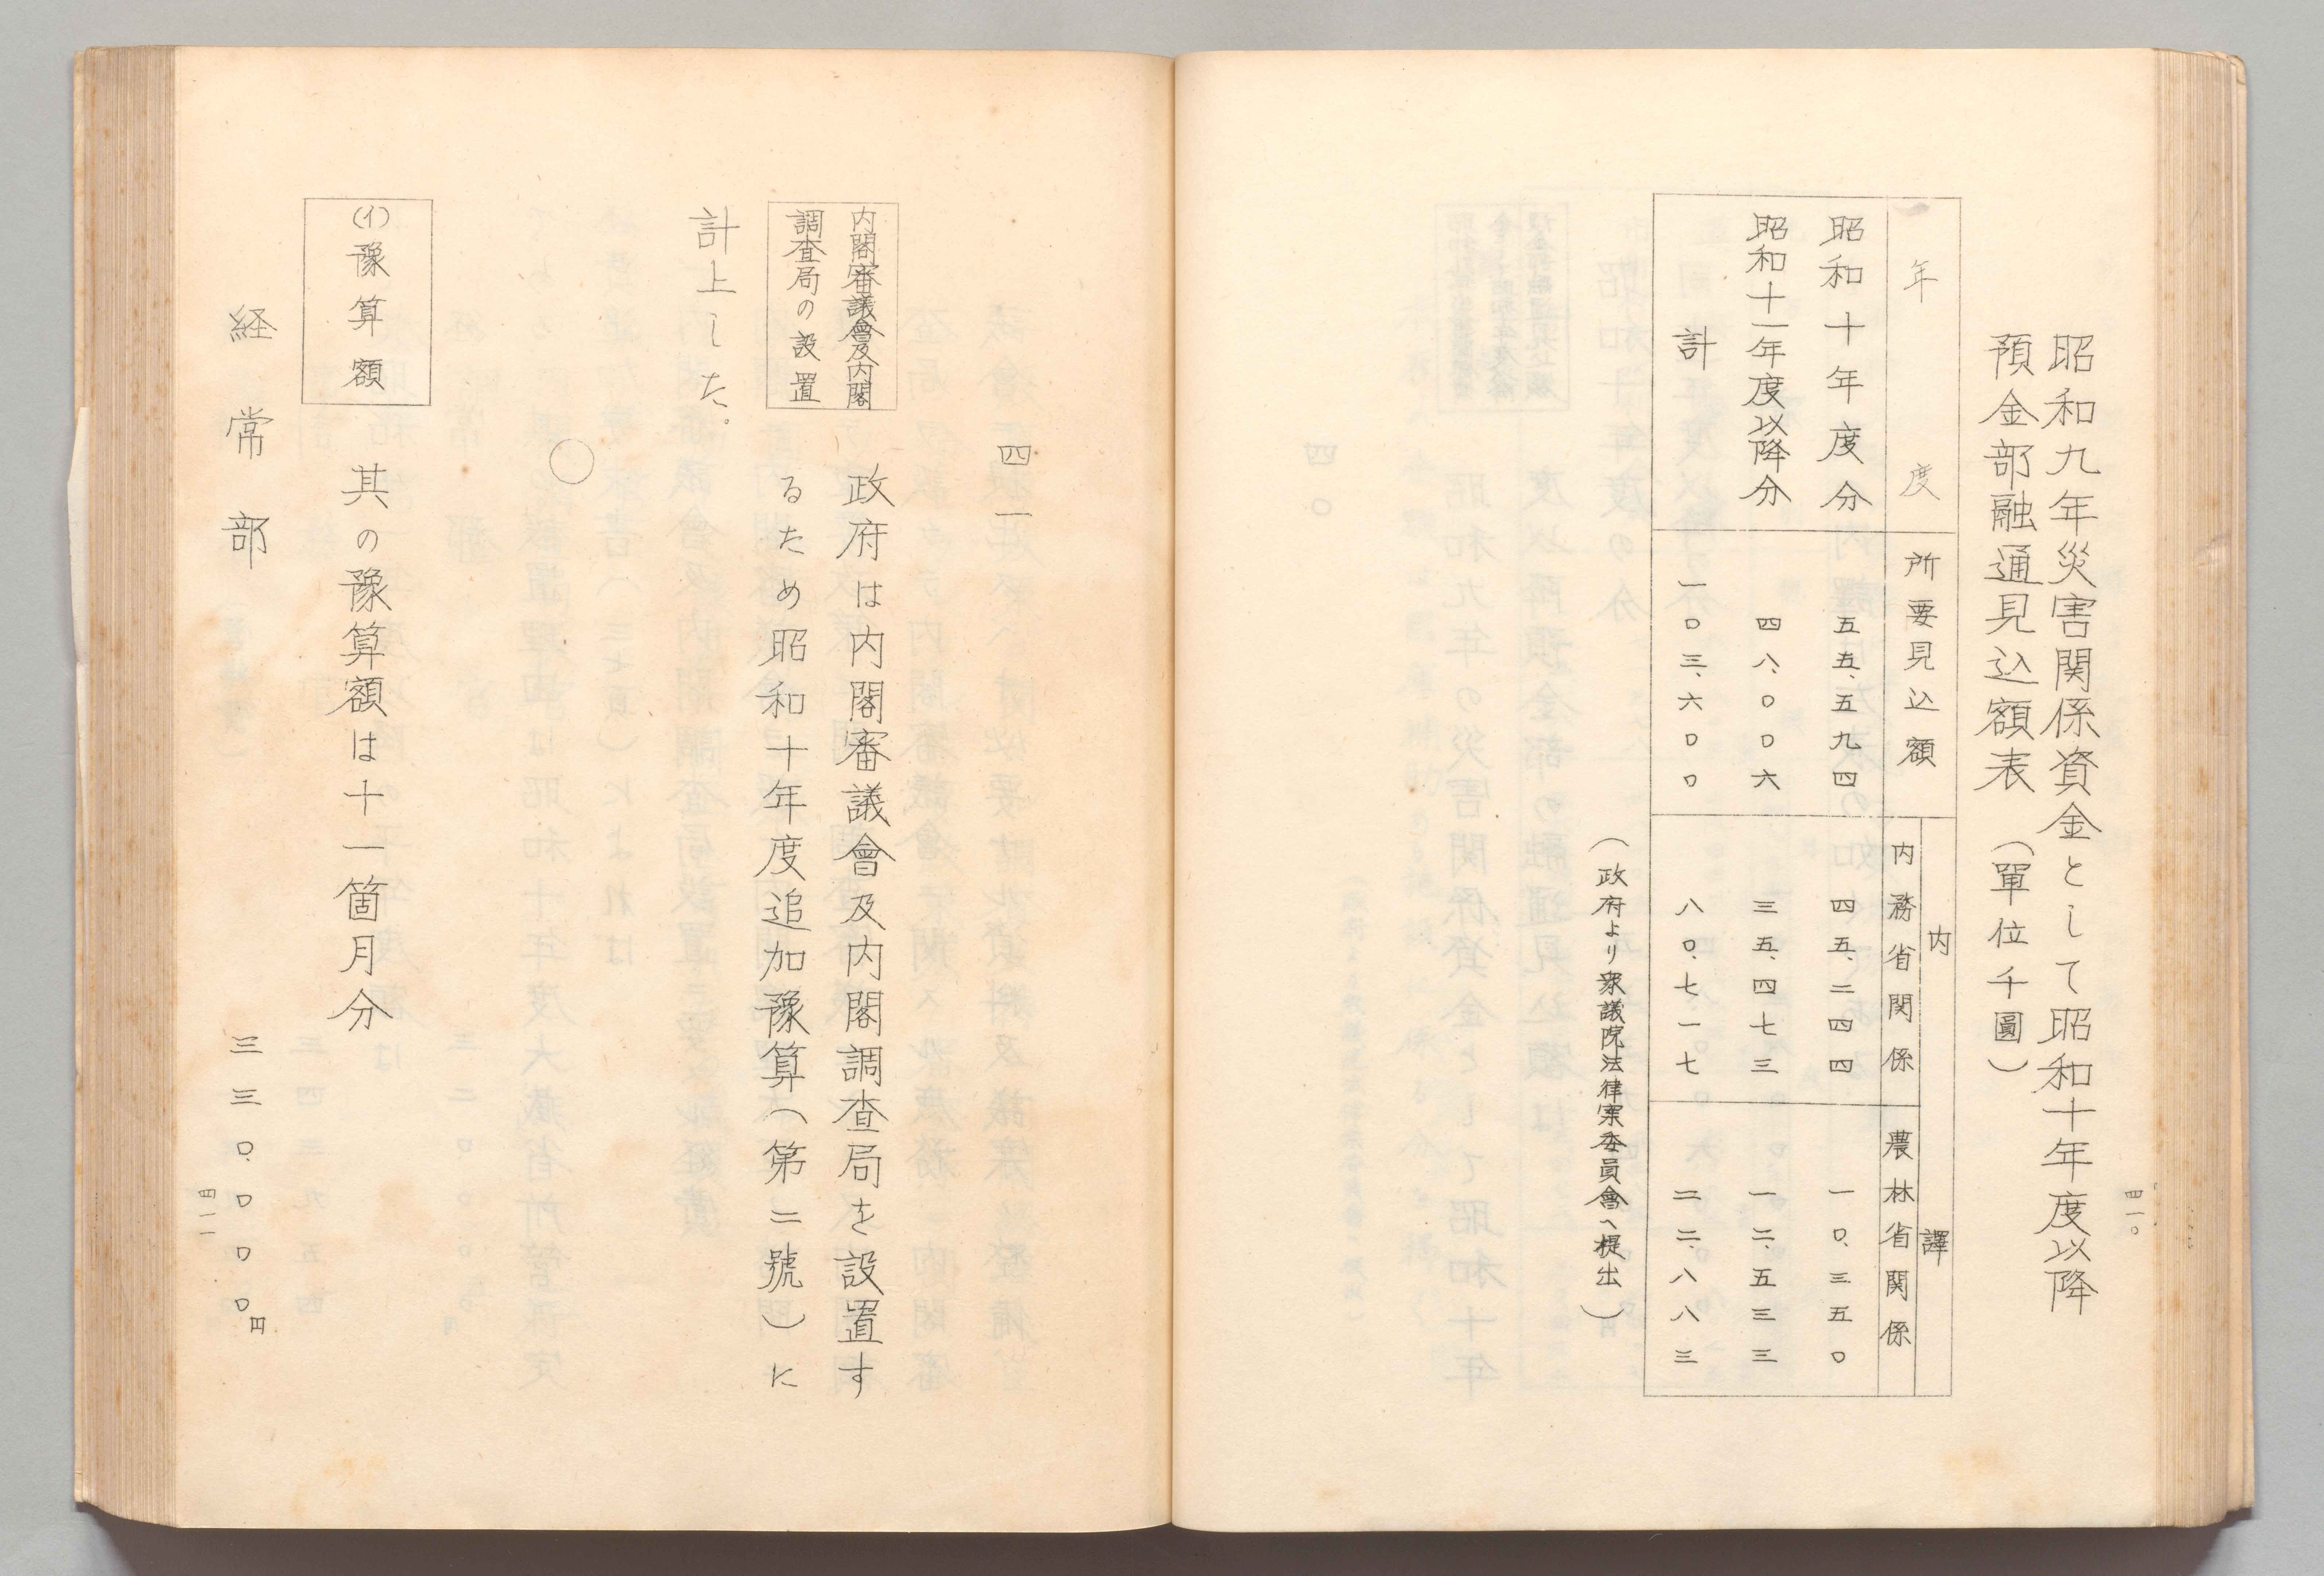 昭和九年災害関係資金として昭和十年度以降
預金部融通見込額表　（單位千圓）
年度　所要見込額　内譯　内務省関係　農林省関係
昭和十年度分　五五、五九四　四五、二四四　一〇、三五〇
昭和十一年度以降分　四八、〇〇六　三五、四七三　一二、五三三
計　一〇三、六〇〇　八〇、七一七　二二、八八三
（政府より衆議院法律案委員會へ提出）
四一〇
四一
内閣審議會及内閣
調査局の設置
政府は内閣審議會及内閣調査局を設置す
るため昭和十年度追加豫算（第二號）に
計上した。
〇
(イ)豫算額
其の豫算額は十一箇月分
経常部　三三〇、〇〇〇円
四一一